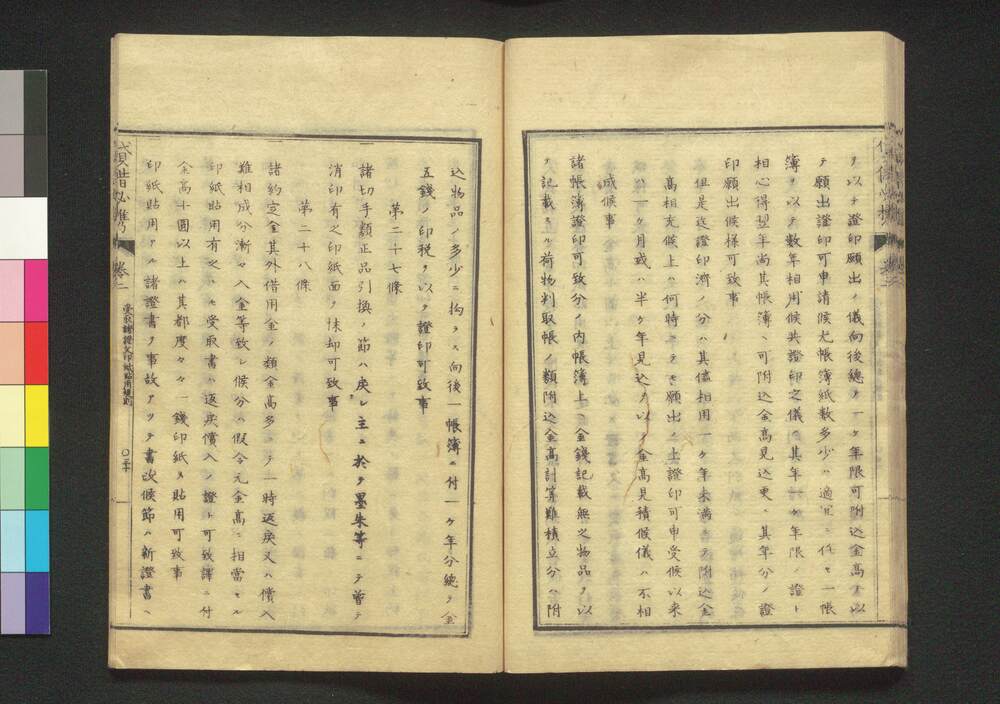 ヲ以テ證印願出ノ儀向後總テ一ケ年限可附込金高ヲ以
テ願出證印可申請候尤帳簿紙數多少ハ適宜ニ任セ一帳
簿ヲ以テ数年相用候共證印之儀ハ其年一ケ年限ノ證ト
相心得翌年尚其帳簿ヘ可附込金高見込更ニ其年分ノ證
印願出候様可致事
但是迄證印濟ノ分ハ其儘相用一ケ年未満ニテ附込金
高相充候上ハ何時ニテモ願出ノ上證印可申受候以来
一ケ月或ハ半ケ年見込ヲ以テ金高見積候儀ハ不相
成候事
諸帳簿證印可致分ノ内帳簿上ヘ金錢記載無之物品ヲ以
テ記載スル荷物判取帳ノ類附込金高計算難積立分ハ附
込物品ノ多少ニ拘ラス向後一帳簿ニ付一ケ年分總テ金
五錢ノ印税ヲ以テ證印可致事
第二十七條
諸切手類正品引換ノ節ハ戻シ主ニ於テ墨朱等ニテ曽テ
消印有之印紙面ヲ抹却可致事
第二十八條
諸約定金其外借用金ノ類金高多ニテ一時返戻又ハ償入
難相成分漸々入金等致シ候分ハ假令元金高ニ相當セル
印紙貼用有之ハモ受取書ハ返戻償入ノ證ト可致譯ニ付
金高十圓以上ハ其都度々々一錢印紙ヲ貼用可致事
印紙貼用アル諸證書ヲ事故アツテ書改候節ハ新證書ヘ
貸借必携
巻二
受取諸證文印紙貼用規則
〇三十